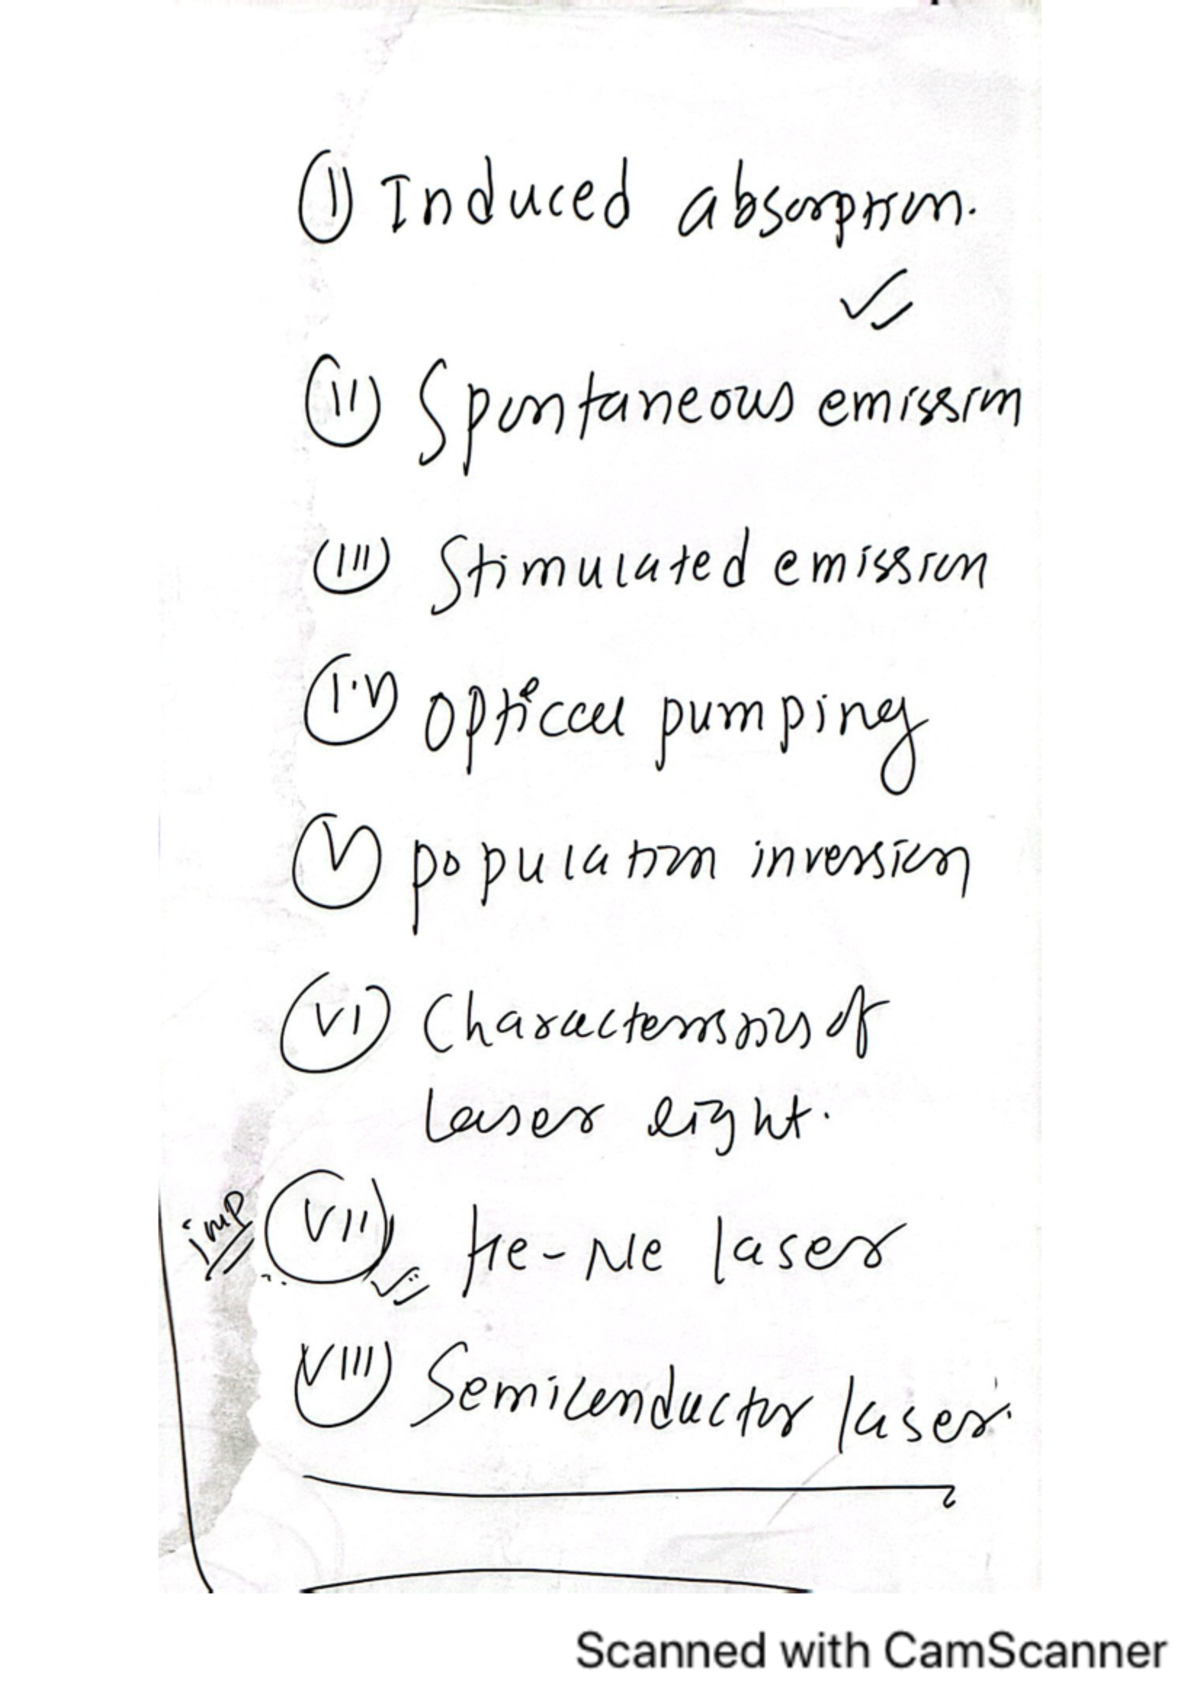 (I) Induced absorption.
(II) Spontaneous emission
(III) Stimulated emission
(IV) Optical pumping
(V) population inversion
(VI) Characteristics of
Laser light.
imp (VII) He-Ne laser
(VIII) Semiconductor laser.
Scanned with CamScanner